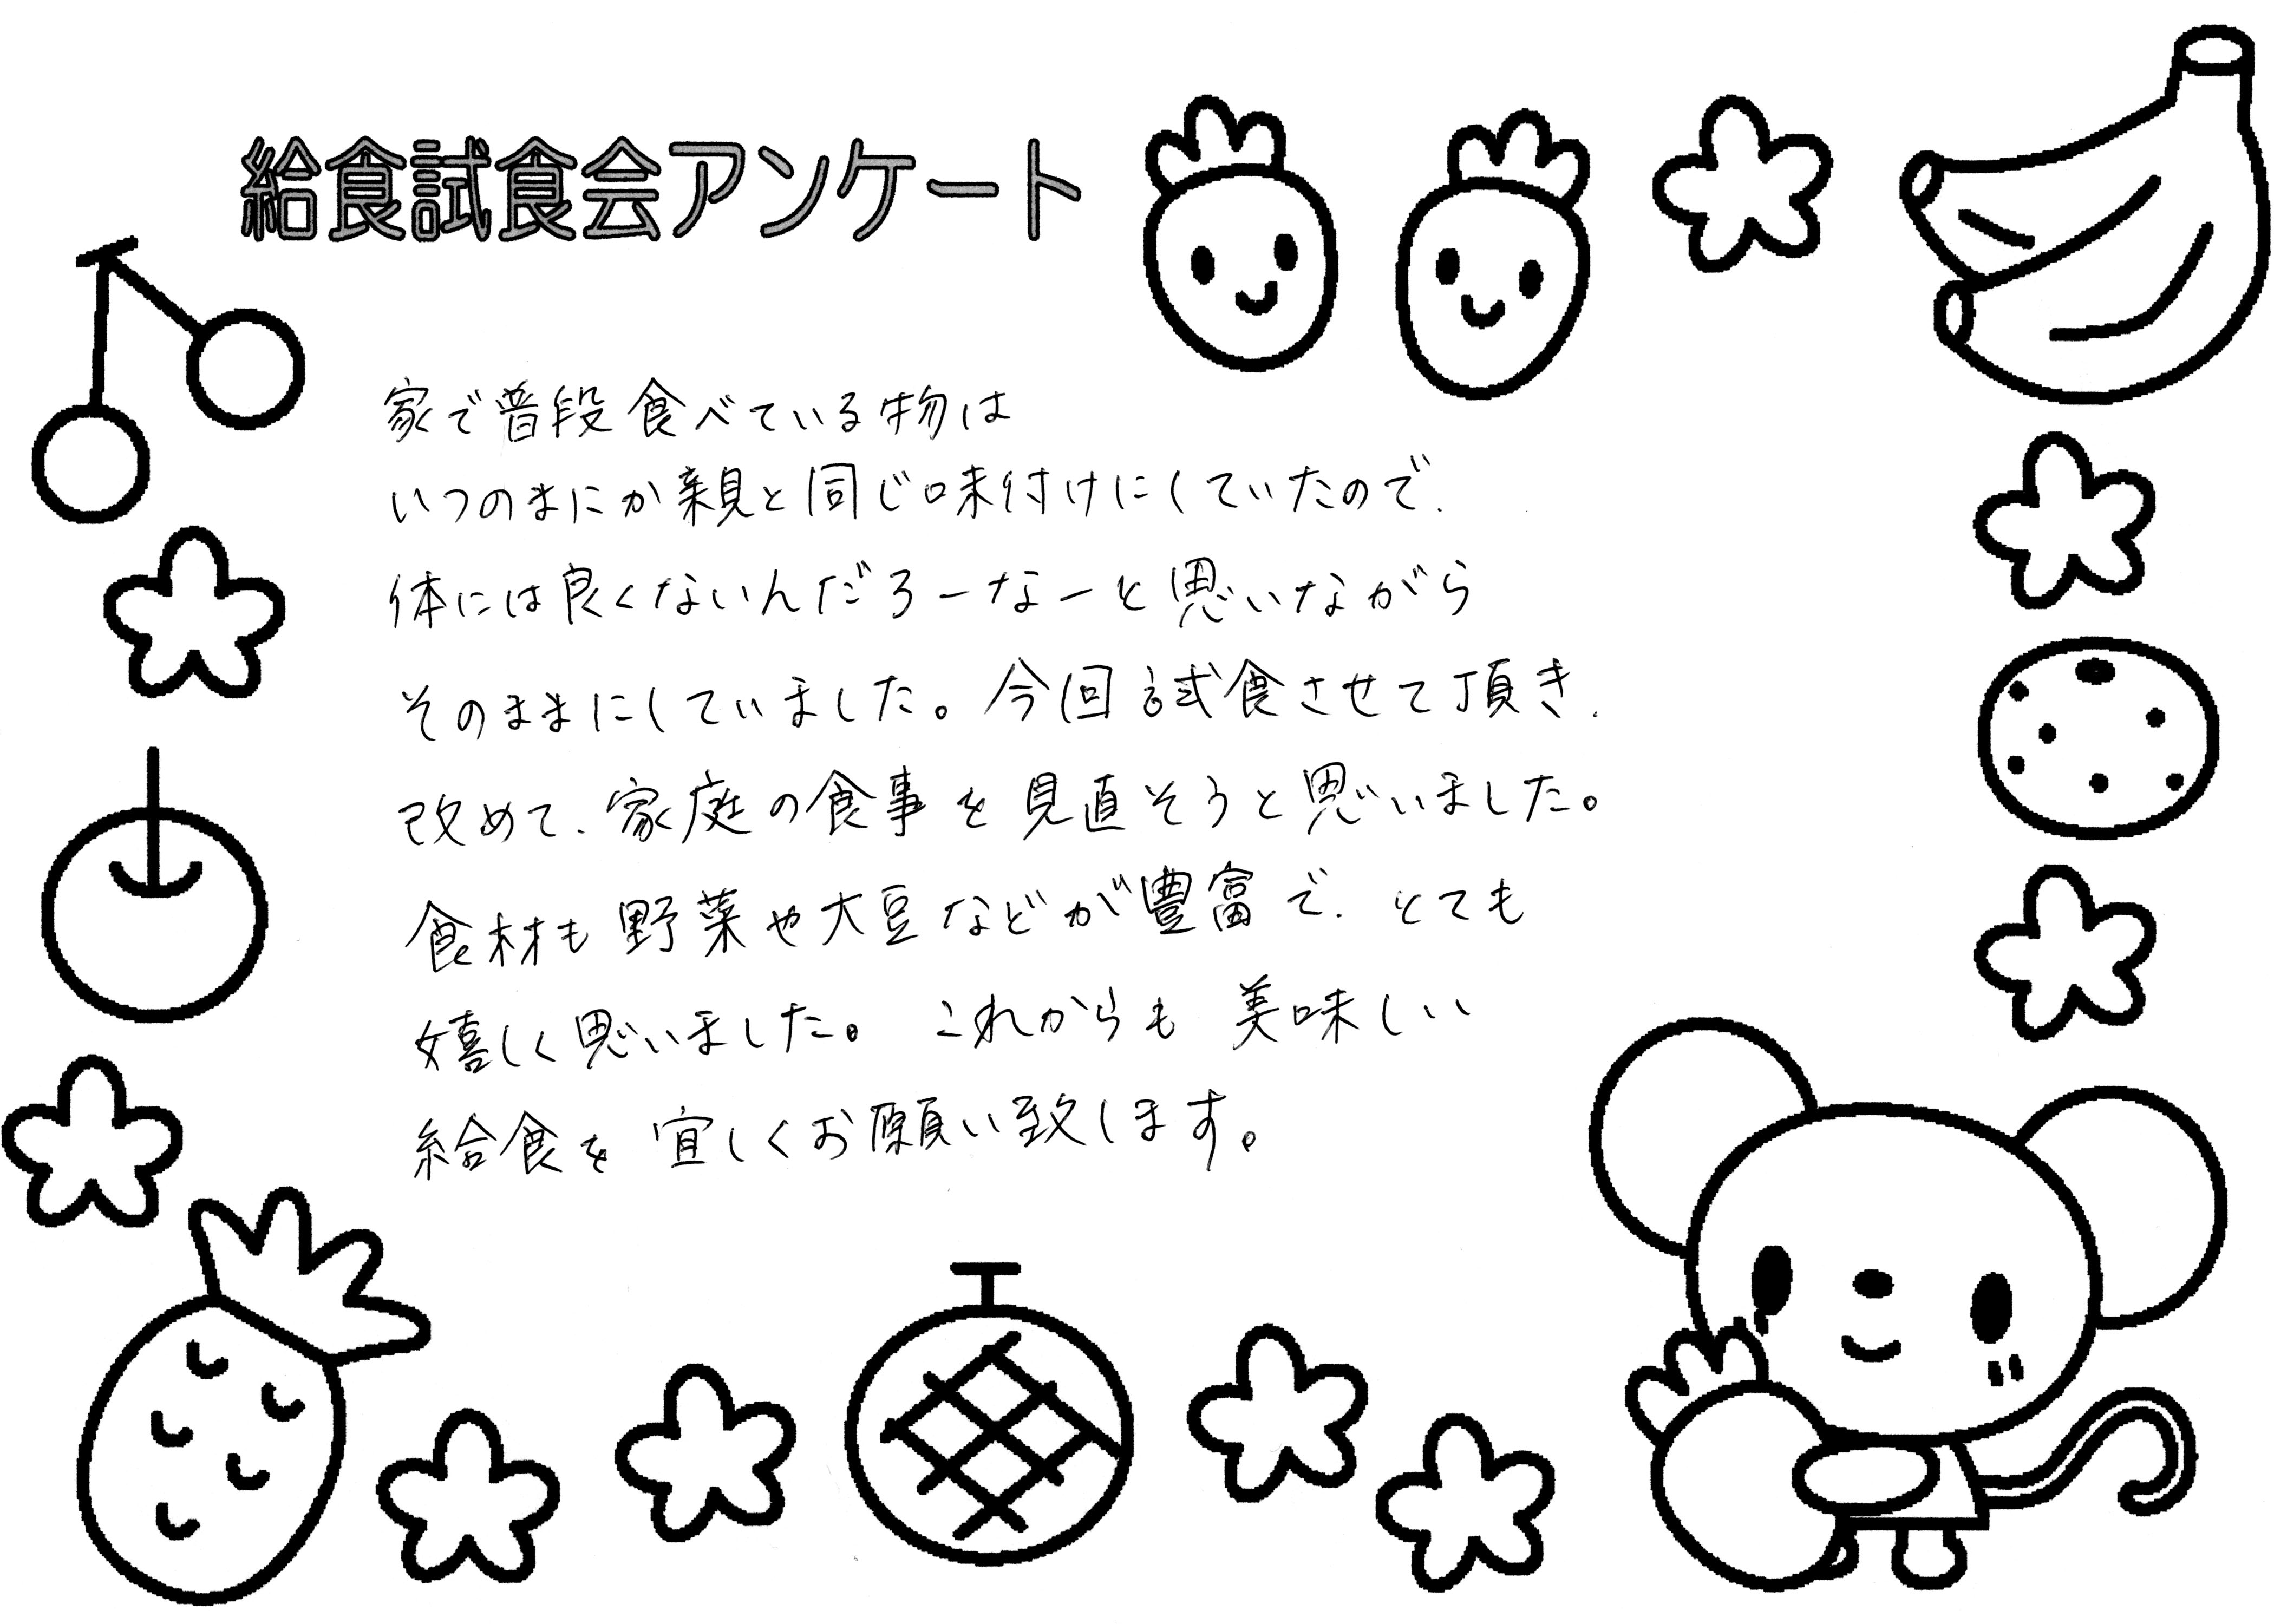 給食試食会アンケート
家で普段食べている物は
いつのまにか親と同じ味付けにしていたので、
体には良くないんだろーなーと思いながら
そのままにしていました。今回試食させて頂き、
改めて、家庭の食事を見直そうと思いました。
食材も野菜や大豆などが豊富で、とても
嬉しく思いました。これからも美味しい
給食を宜しくお願い致します。